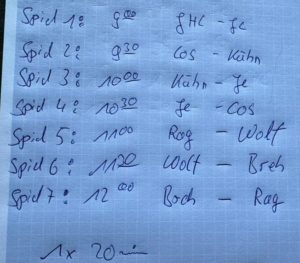 Spiel 1: 9:00 JHC - Je
Spiel 2: 9:30 Cos - Kühn
Spiel 3: 10:00 Kühn - Je
Spiel 4: 10:30 Je - Cos
Spiel 5: 11:00 Rag - Wolf
Spiel 6: 11:30 Wolf - Breh
Spiel 7: 12:00 Breh - Rag
1 x 20 min